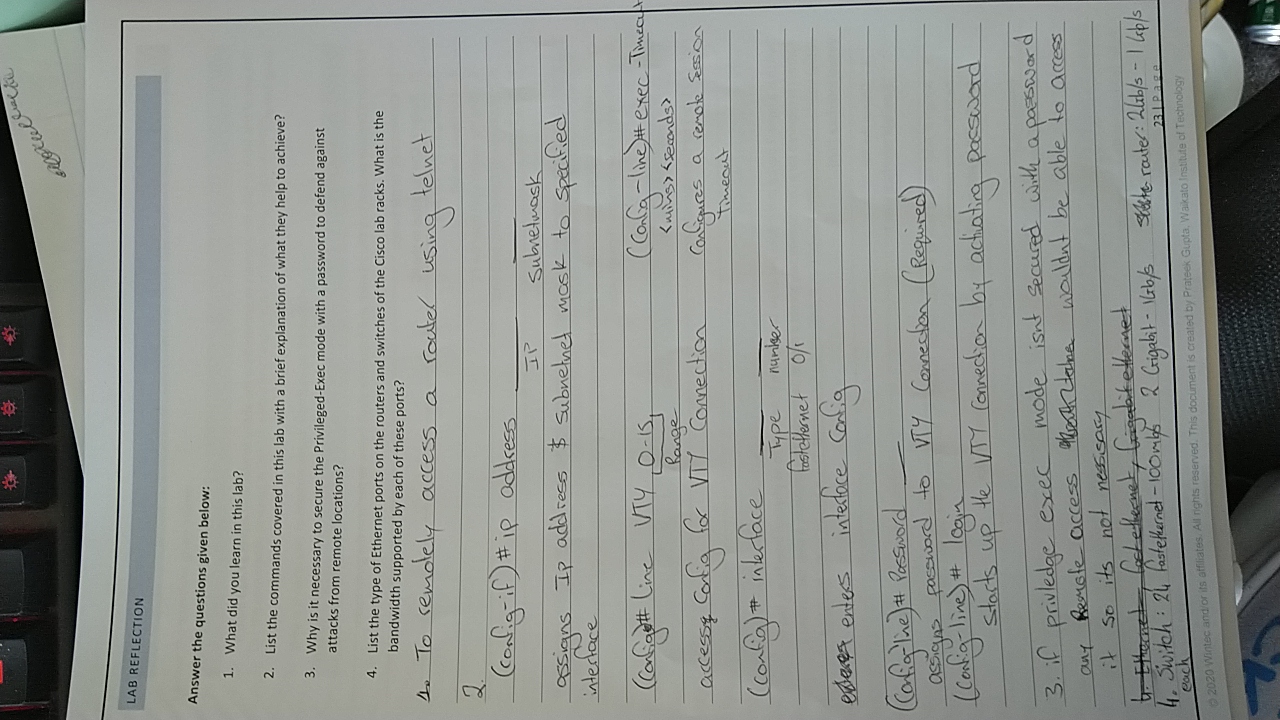 LAB REFLECTION
Answer the questions given below:
1. What did you learn in this lab?
2. List the commands covered in this lab with a brief explanation of what they help to achieve?
3. Why is it necessary to secure the Privileged-Exec mode with a password to defend against
attacks from remote locations?
4. List the type of Ethernet ports on the routers and switches of the Cisco lab racks. What is the
bandwidth supported by each of these ports?
1. To remotely access a router using telnet
2.
(config-if)# ip address
IP subnetmask
assigns IP address & subnetnet mask to specified
interface
(config)# line VTY 0-15
Range
access config for VTY connection
(config-line)# exec-Timeout
<mins> <seconds>
configures a remote session
timeout
(config)# interface
Type number
fastethernet 0/1
enters interface config
(config-line)# Password
assigns password to VTY connection (Required)
(config-line)# login
starts up the VTY connection by activating password
3. if priviledge exec mode isnt secured with a password
any Remote access wouldnt be able to access
it so its not nessicary
4. Switch: 24 fastethernet-100mbps 2 Gigabit-1Gb/s router: 2Gb/s - 1Gb/s
each
23 | Page
© 2020 Wintec and/or its affiliates. All rights reserved. This document is created by Prateek Gupta, Waikato Institute of Technology